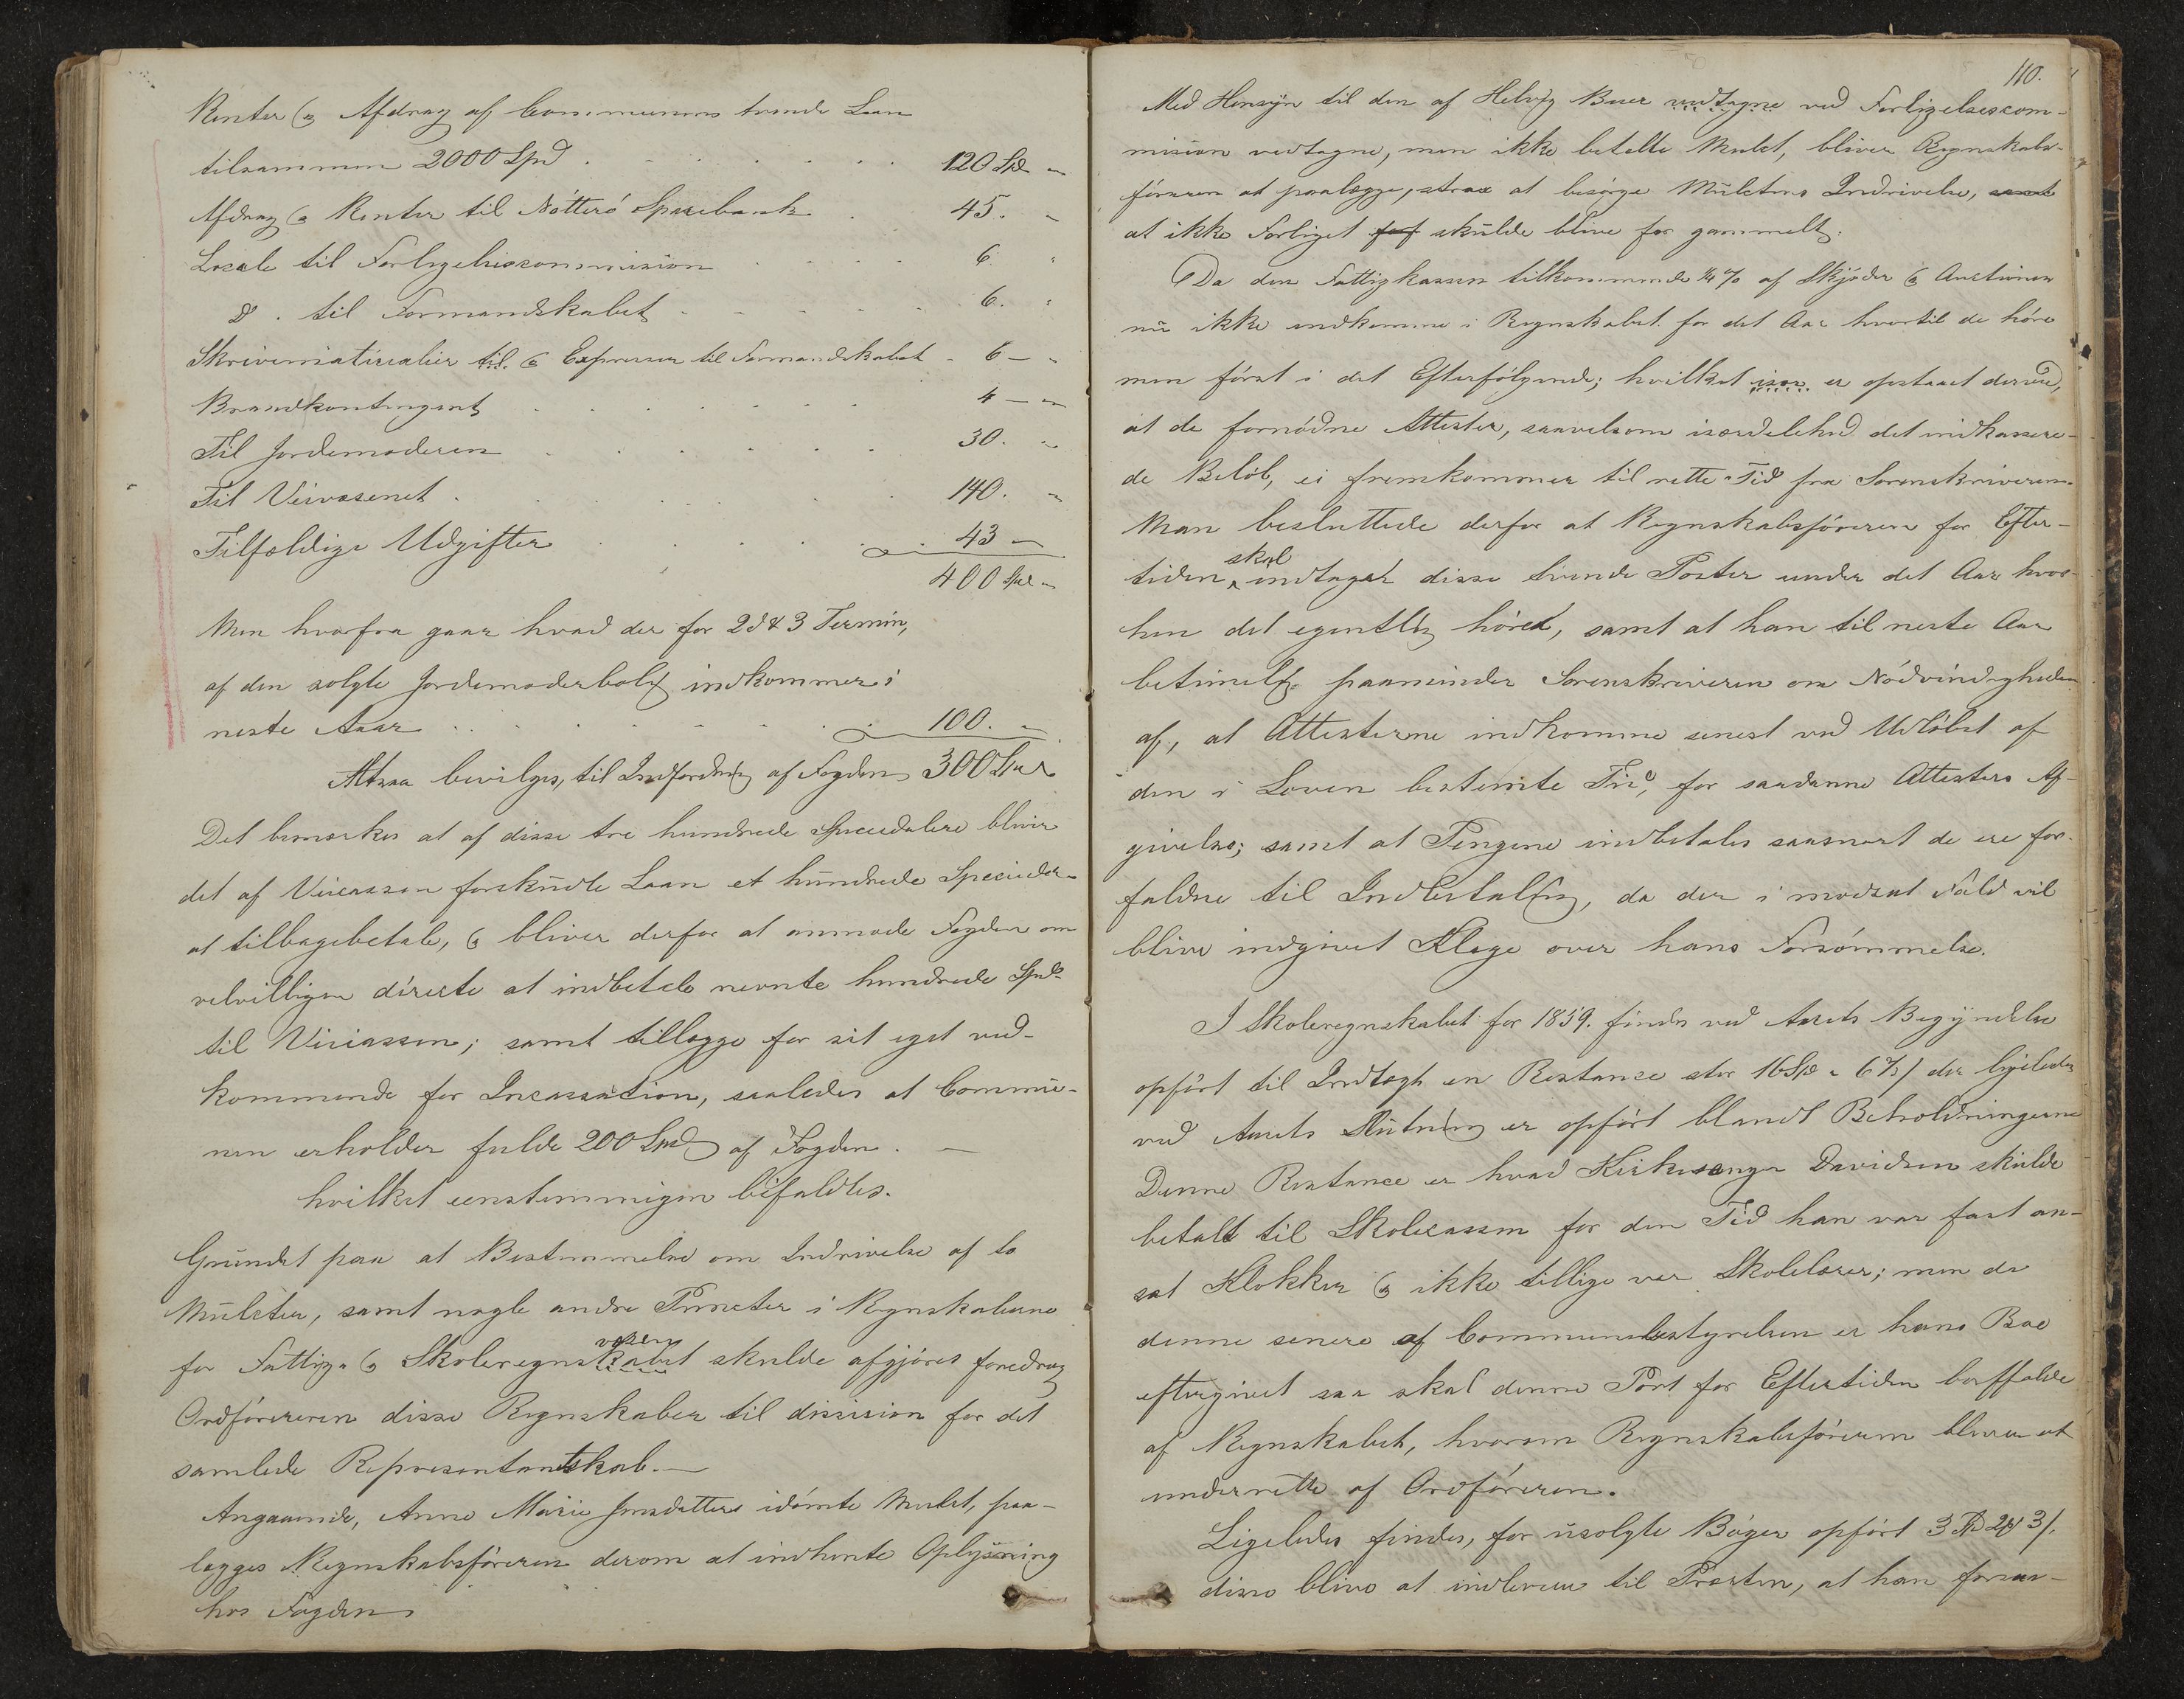 Renter og Afdrag af Communens tvende Laan
tilsammen 2000 Spd . . . . . . . 120 Spd "
Afdrag og Renter til Nötterö Sparebank . 45. "
Locale til Forligelsescommission . . . . 6. "
d . til Formandskabet . . . . . 6. "
Skrivematirealier til og Expresser til Formandskabet - 6 — "
Brandkontingent . . . . . . 4 — "
Til Jordemoderen . . . . . . 30. "
Til Veivæsenet . . . . . . . 140. "
Tilfældige Udgifter . . . . . 43 —
400 Spd "
Men hvorfra gaar hvad der for 2d & 3 Termin,
af den solgte Jordemoderbolig indkommer i
neste Aaar . . . . . . . 100. "
Altsaa bevilges, til Indfordring af Fogden 300 Spd
Det bemærkes at af disse tre hundrede Speciedalere bliver
det af Veicassen forskudte Laan et hundrede Speciedaler
at tilbagebetale, og bliver derfor at anmode Fogden om
velvilligen directe at indbetale nevnte hundrede Spd
til Veicassen; samt tillægge for sit eget ved-
kommende for Incassation, saaledes at Commu-
nen erholder fulde 200 Spd af Fogden. —
hvilket eenstemmigen bifaldtes.
Grundet paa at Bestemmelse om Indrivelse af to
Mulcter, samt nogle andre Puncter i Regnskaberne
for Fattig- og Skoleregnskabet skulde afgjöres foredrog
Ordföreren disse Regnskaber til dission for det
samlede Representantskab. —
Angaaende, Anne Marie Jensdatters idömte Mulct, paa-
lægges Regnskabsföreren derom at indhente Oplysning
hos Fogden
110.
Med Hensyn til den af Helvig Buer vedtagne ved Forligelsescom-
mision vedtagne, men ikke betalte Mulct, bliver Regnskabs-
föreren at paalægge, strax at besörge Mulctens Indrivelse, samt
at ikke Forliget skulde blive for gammelt.
Da den Fattigkassen tilkommende ¼ % af Skjöder og Auctioner
nu ikke indkomme i Regnskabet for det Aar hvortil de höre
men först i det Efterfölgende; hvilket især er opstaaet derved,
at de fornödne Attester, saavelsom isærdelehed det indkassere-
de Belöb, ei fremkommer til rette Tid fra Sorenskriveren.
Man besluttede derfor at Regnskabsföreren for Efter-
tiden skal indtaget disse tvende Poster under det Aar hvor-
hen det egentlig höret, samt at han til neste Aar
betimelig paaminder Sorenskriveren om Nödvindigheden
af, at Attesterne indkomme senest ved Udlöbet af
den i Loven bestemte Tid, for saadanne Attesters Af-
givelse; samt at Pengene indbetales saasnart de ere for-
faldne til Indbetaling, da der i modsat Fald vil
blive indgivet Klage over hans Forsömmelse.
I Skoleregnskabet for 1859. findes ved Aarets Begyndelse
opfört til Indtægt en Restance stor 16 Spd " 6 ß der ligeledes
ved Aarets Slutning er opfört blandt Beholdningerne
Denne Restance er hvad Kirkesanger Davidsen skulde
betalt til Skolecassen for den Tid han var fast an-
sat Klokker og ikke tillige var Skolelærer; men da
denne senere af Communebestyrelsen er hans Boe
eftergivet saa skal denne Post for Eftertiden bortfalde
af Regnskabet, hvorom Regnskabsföreren bliver at
underrette af Ordföreren.
Ligeledes findes, for usolgte Böger opfört 3 Spd 2 ort 3 ß.
disse blive at indlevere til Præsten, at han forsaa-